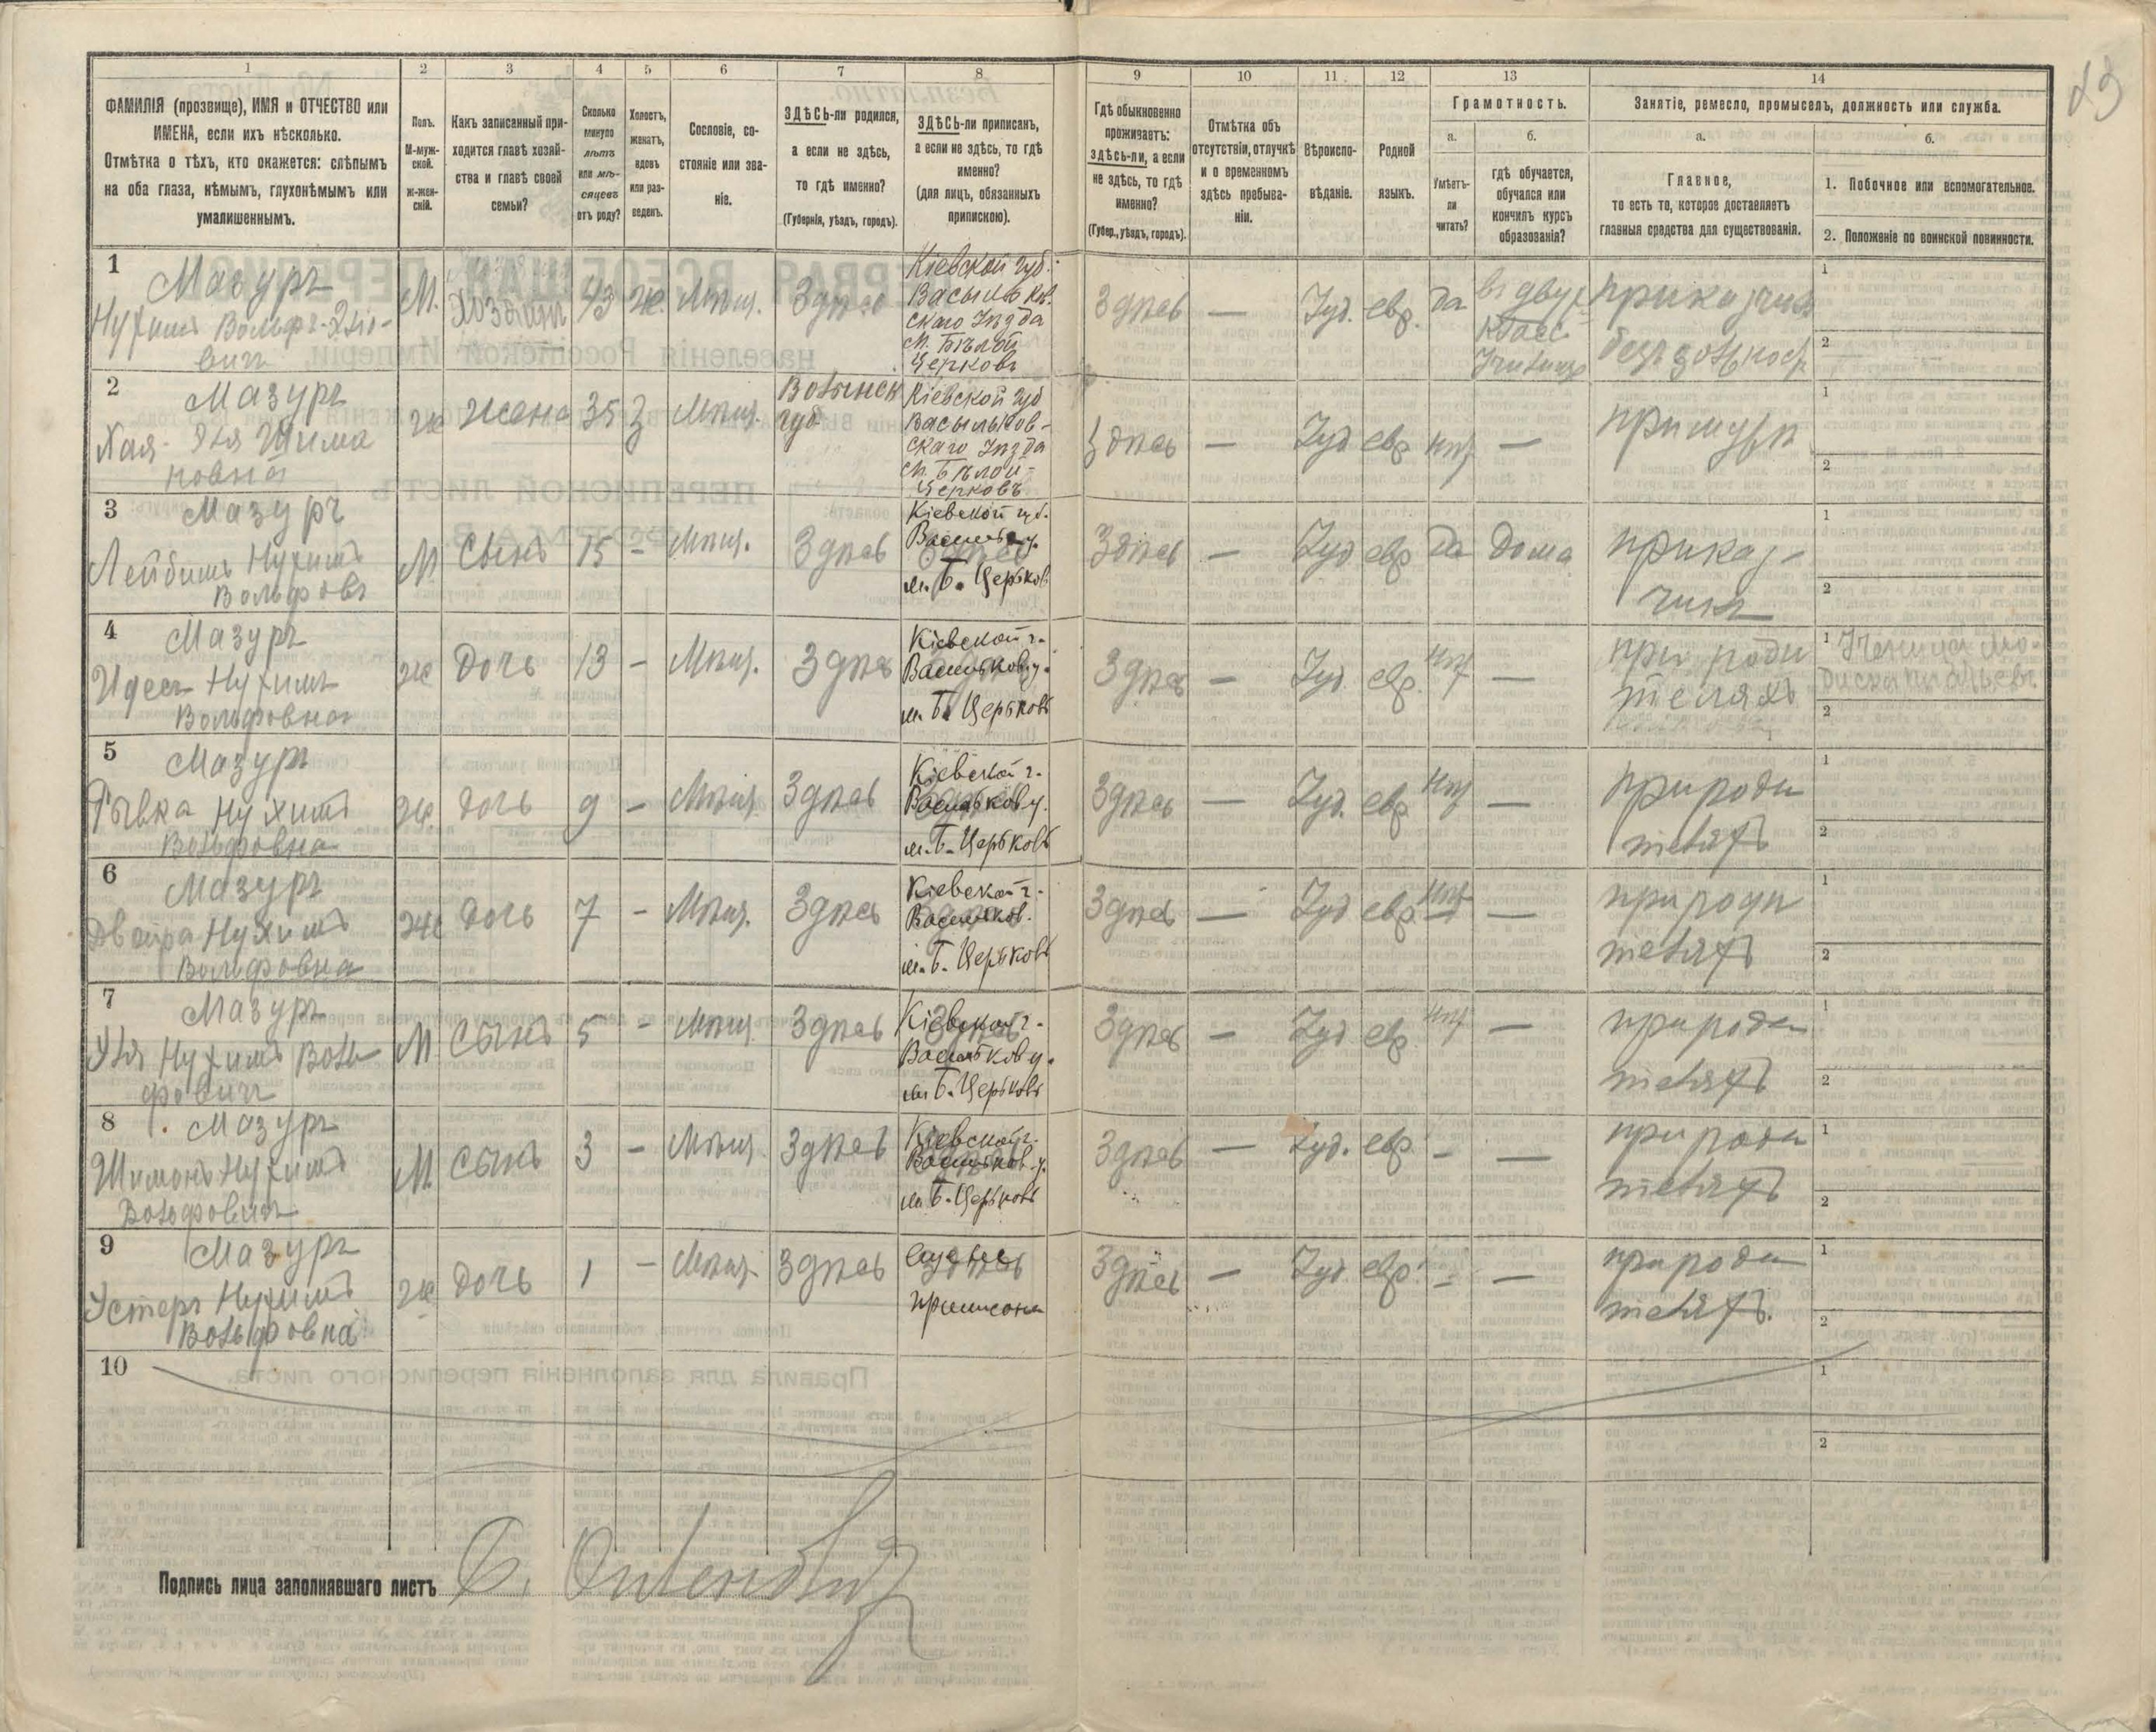 1 2 3 4 5 6 7 8 9 10 11 12 13 14
ФАМИЛІЯ (прозвище), ИМЯ и ОТЧЕСТВО или
ИМЕНА, если ихъ нѣсколько.
Отмѣтка о тѣхъ, кто окажется: слѣпымъ
на оба глаза, нѣмымъ, глухонѣмымъ или
умалишеннымъ.
Полъ.
М-муж-
ской.
Ж-жен-
скій.
Какъ записанный при-
ходится главѣ хозяй-
ства и главѣ своей
семьи?
Сколько
минуло
лѣтъ
или мѣ-
сяцевъ
отъ роду?
Холостъ,
женатъ,
вдовъ
или раз-
веденъ.
Сословіе, со-
стояніе или зва-
ніе.
ЗДѢСЬ-ли родился,
а если не здѣсь,
то гдѣ именно?
(Губернія, уѣздъ, городъ).
ЗДѢСЬ-ли приписанъ,
а если не здѣсь, то гдѣ
именно?
(для лицъ, обязанныхъ
припискою).
Гдѣ обыкновенно
проживаетъ:
здѣсь-ли, а если
не здѣсь, то гдѣ
именно?
(Губер., уѣздъ, городъ).
Отмѣтка объ
отсутствіи, отлучкѣ
и о временномъ
здѣсь пребыва-
ніи.
Вѣроиспо-
вѣданіе.
Родной
языкъ.
Грамотность.
а.
Умѣетъ-
ли
читать?
б.
гдѣ обучается,
обучался или
кончилъ курсъ
образованія?
Занятіе, ремесло, промыселъ, должность или служба.
а.
Главное,
то есть то, которое доставляетъ
главныя средства для существованія.
б.
1. Побочное или вспомогательное.
2. Положеніе по воинской повинности.
1
Мазуръ
Нухимъ Вольфъ-
вичъ
М. Хозяинъ 43 ж. Мѣщ. Здѣсь
Кіевской губ.
Васильков-
скаго Уѣзда
М. Бѣлой
Церковъ
Здѣсь — Іуд. евр. да
въ двух
класс
Приказчикъ
1
2
2
Мазуръ
Хая- Шима
новна
ж Жена 35 З Мѣщ.
Волынск
губ.
Кіевской губ
Васильков-
скаго Уѣзда
М. Бѣлой-
Церковъ
Здѣсь — Іуд евр нѣт —
при мужѣ
1
2
3
Мазуръ
Лейбишъ Нухимъ
Вольфовъ
М Сынъ 15 - Мѣщ. Здѣсь
Кіевской губ.
Васильк у.
м. Б. Церковъ
Здѣсь — Іуд евр Да Дома
приказ-
чикъ
1
2
4
Мазуръ
Идесь Нухимъ
Вольфовна
ж Дочь 13 - Мѣщ. Здѣсь
Кіевской г.
Васильков у.
м. Б. Церковъ
Здѣсь — Іуд. евр. нѣт —
при роди
теляхъ
1 Ученица мо-
2
5
Мазуръ
Рывка Нухимъ
Вольфовна
ж. дочь 9 - Мѣщ Здѣсь
Кіевской г.
Васильков у.
м. Б. Церковъ
Здѣсь — Іуд. евр. нѣт —
при роди
теляхъ
1
2
6
Мазуръ
Двойра Нухимъ
Вольфовна
ж дочь 7 - Мѣщ. Здѣсь
Кіевской г.
Васильков.
м. Б. Церковъ
Здѣсь — Іуд евр. нѣт —
при роди
теляхъ
1
2
7
Мазуръ
Нухимъ Воль
фовичъ
М Сынъ 5 - Мѣщ Здѣсь
Кіевской г.
Васильков у.
м. Б. Церковъ
Здѣсь — Іуд евр. нѣт —
при роди
теляхъ
1
2
8
Мазуръ
Шимонъ Нухимъ
Вольфовичъ
М. сынъ 3 - Мѣщ. Здѣсь
Кіевской г.
Васильков у.
м. Б. Церковъ
Здѣсь — Іуд. евр. - —
при роди
теляхъ
1
2
9
Мазуръ
Устеръ Нухимъ
Вольфовна
ж дочь 1 - Мѣщ. Здѣсь
Здѣсь — Іуд. евр. - —
при роди
теляхъ.
1
2
10
1
2
Подпись лица заполнявшаго листъ